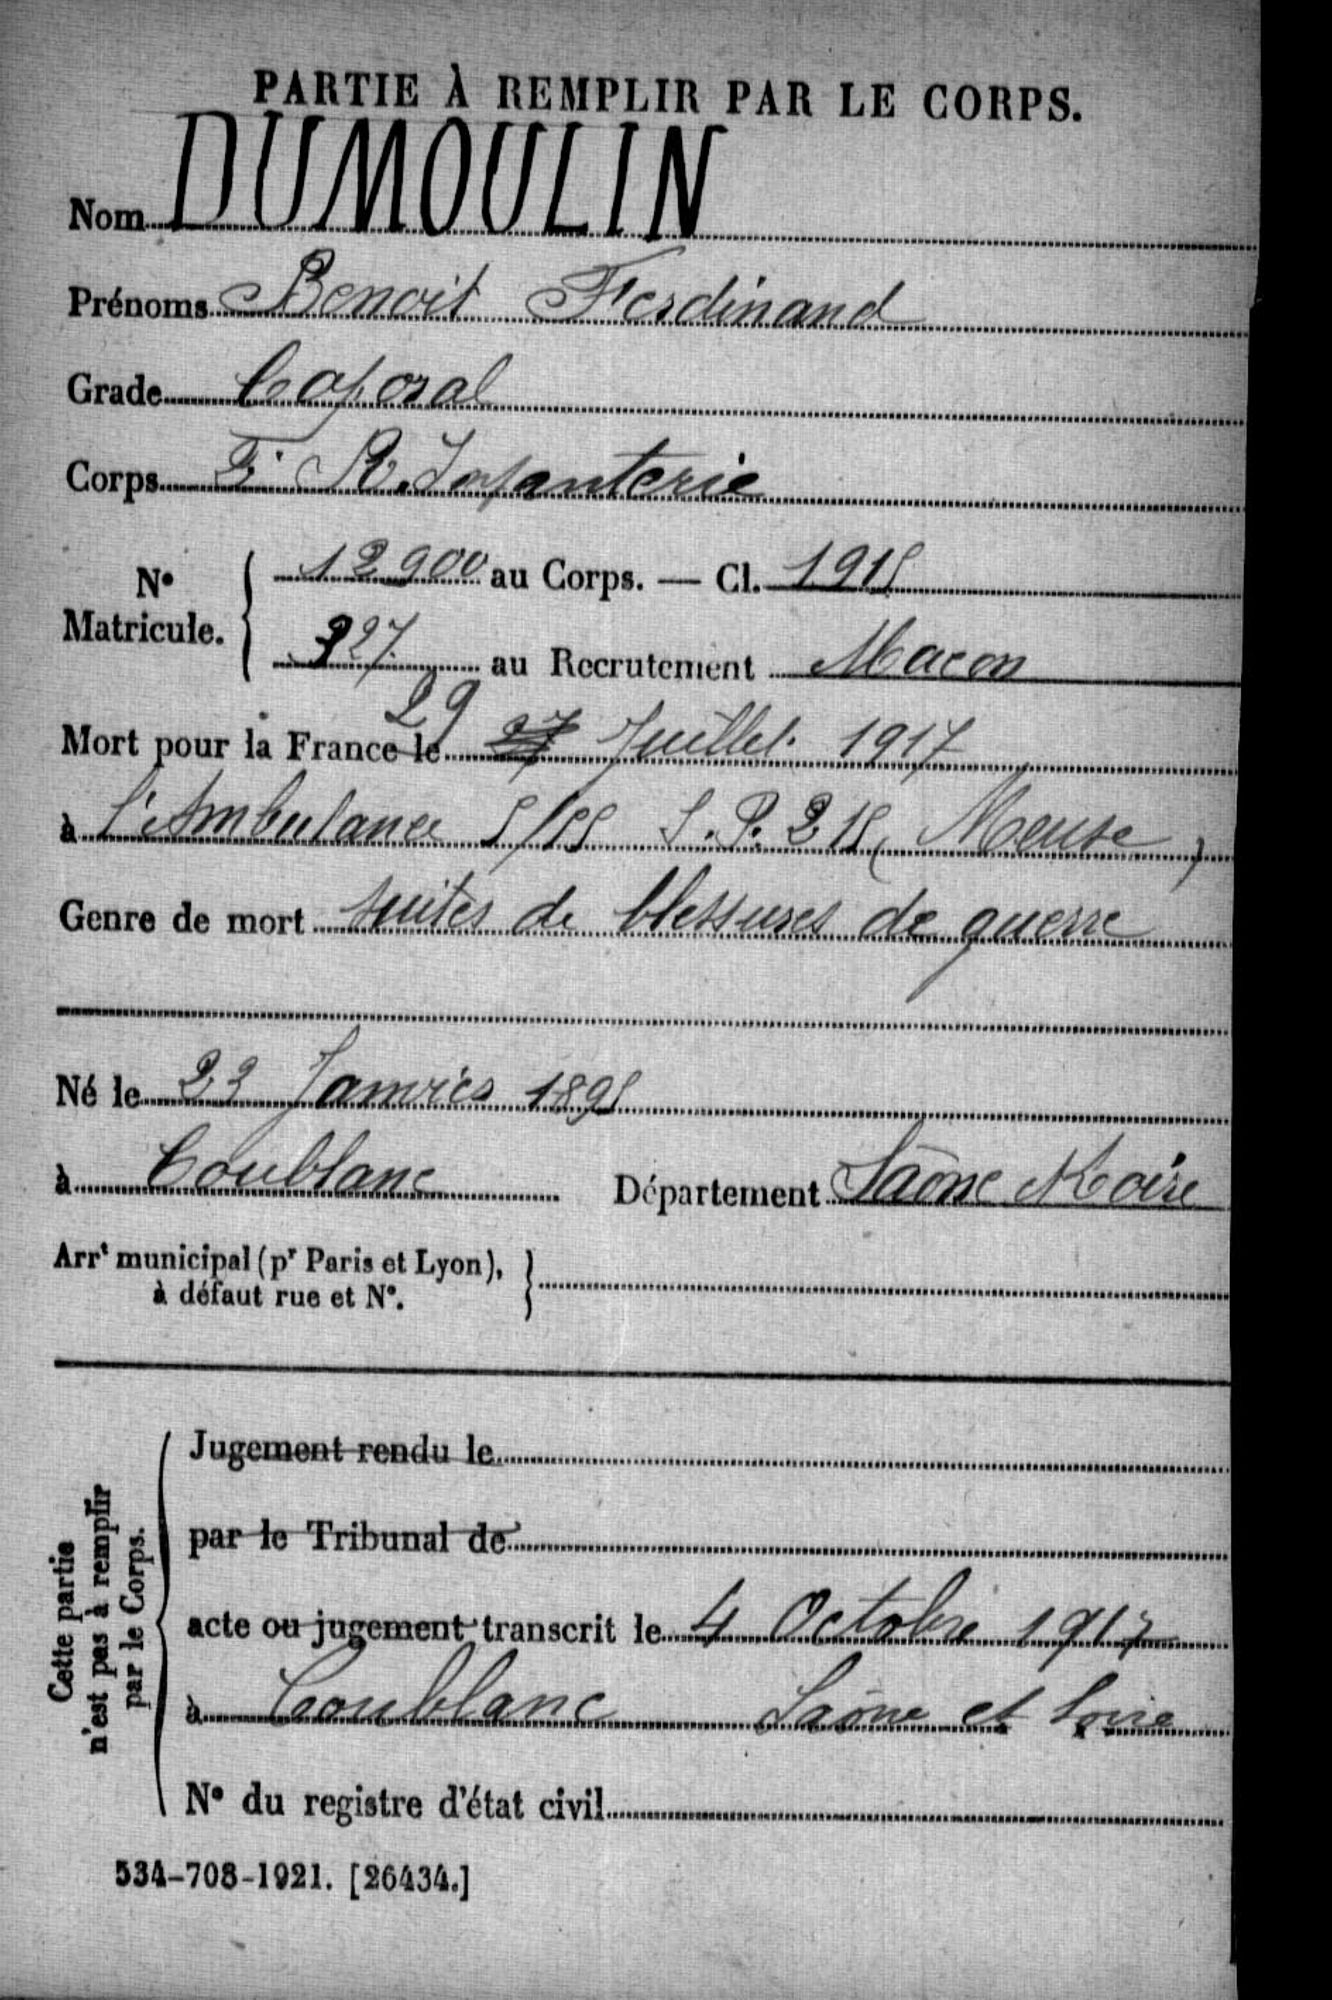 PARTIE À REMPLIR PAR LE CORPS.
Nom DUMOULIN
Prénoms Benoit Ferdinand
Grade Caporal
Corps R. Infanterie
N° Matricule. 12900 au Corps. — Cl. 1915
327 au Recrutement Macon
29
Mort pour la France le 27 Juillet 1917
à l'Ambulance 5/55 S.P. 215 (Meuse)
Genre de mort suites de blessures de guerre
Né le 23 Janvier 1895
à Coublanc Département Saône & Loire
Arrt municipal (pr Paris et Lyon),
à défaut rue et N°.
Cette partie
n'est pas à remplir
par le Corps.
Jugement rendu le
par le Tribunal de
acte ou jugement transcrit le 4 Octobre 1917
à Coublanc Saône et Loire
N° du registre d'état civil
534-708-1921. [26434.]